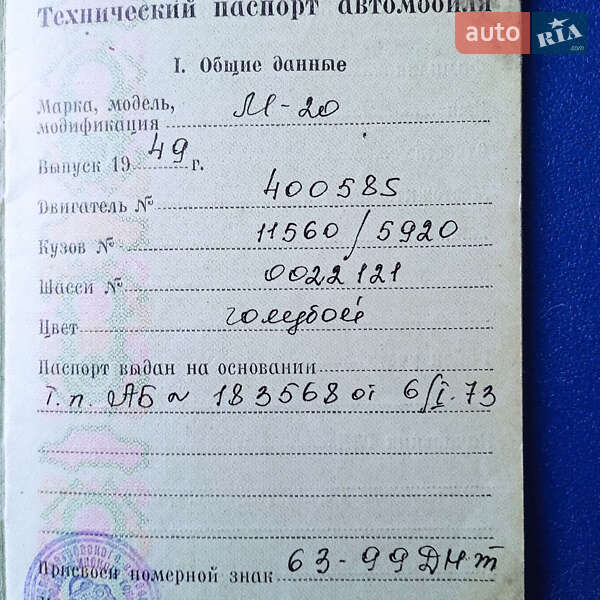 Технический паспорт автомобиля
auto RIA .com
I. Общие данные
Марка, модель, М-20
модификация
Выпуск 19 49 г.
Двигатель № 400585
Кузов № 11560/5920
Шасси № 0022121
Цвет голубой
Паспорт выдан на основании
Т.п. АБ № 183568 от 6/I.73
Присвоен номерной знак 63-99 ДНт